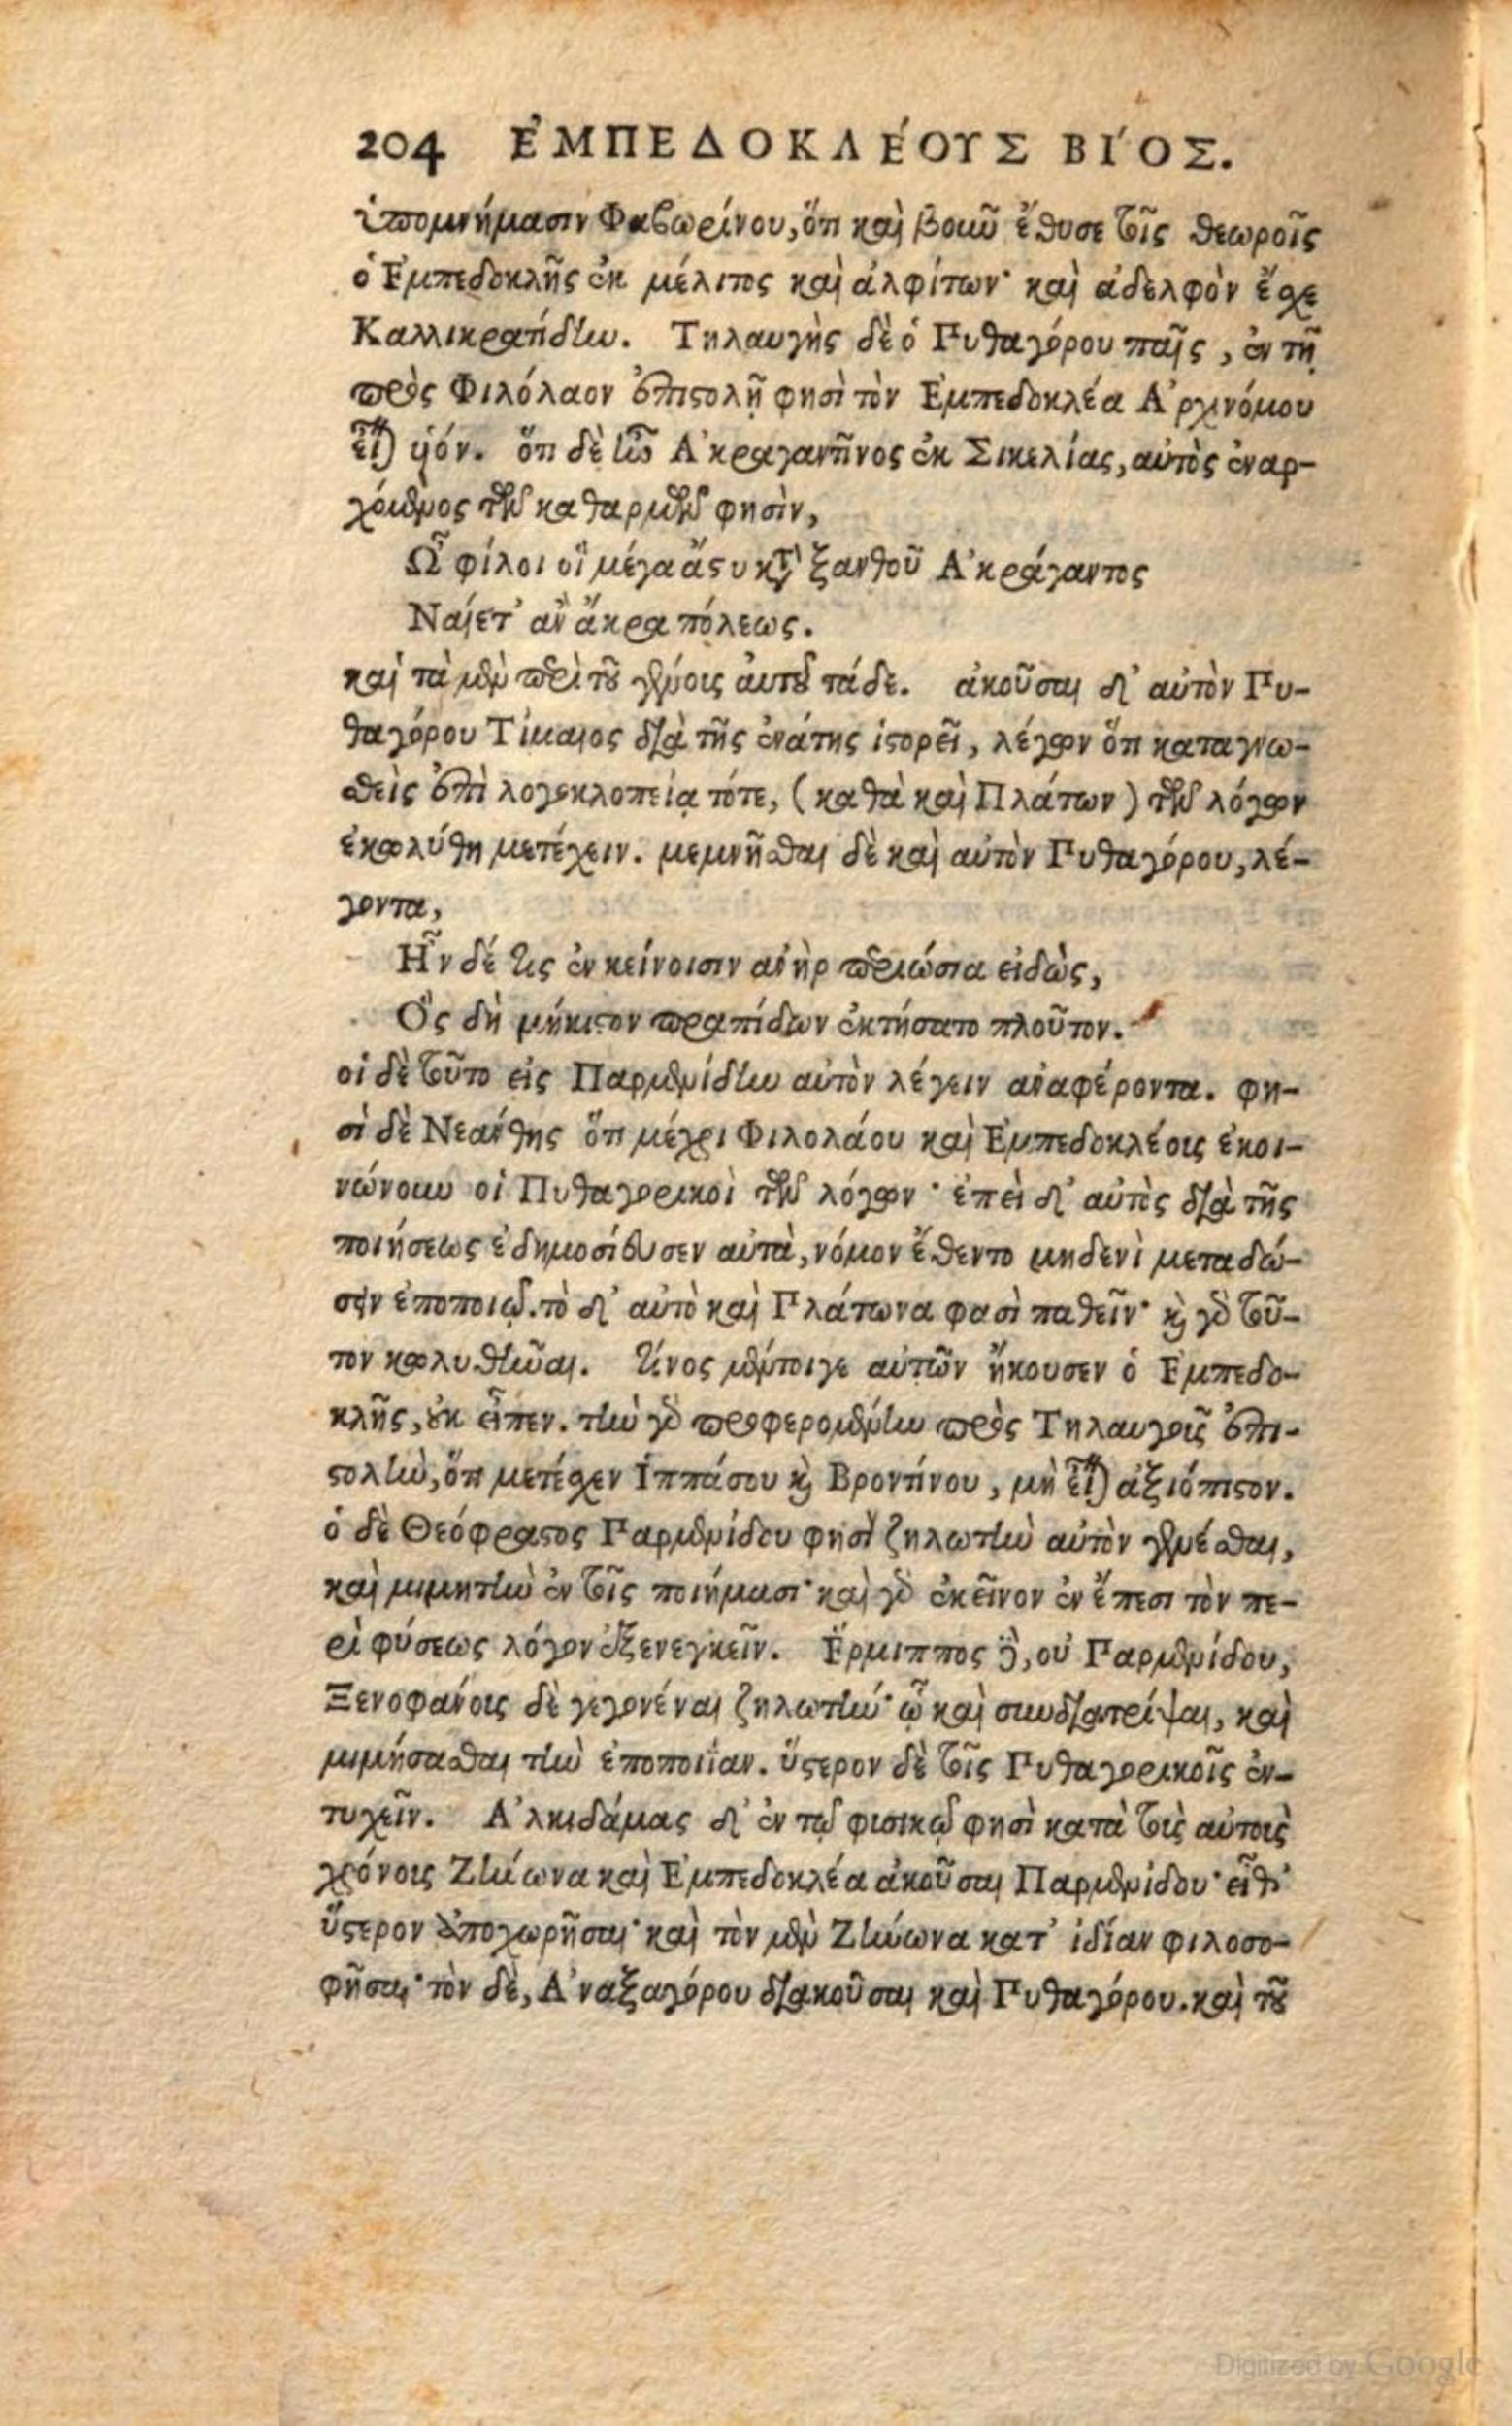 204 ἘΜΠΕΔΟΚΛΈΟΥΣ ΒΊΟΣ.
ὑπομνήμασιν Φαβωρίνου, ὅτι καὶ βοιωῦ ἔθυσε τοῖς θεωροῖς
ὁ Εμπεδοκλῆς ἐκ μέλιτος καὶ ἀλφίτων· καὶ ἀδελφὸν ἔχε
Καλλικρατίδην. Τηλαυγὴς δὲ ὁ Πυθαγόρου παῖς, ἐν τῇ
πρὸς Φιλόλαον ἐπιστολῇ φησὶ τὸν Εμπεδοκλέα Ἀρχινόμου
εἶναι ὑόν. ὅτι δὲ ἦν Ἀκραγαντῖνος ἐκ Σικελίας, αὐτὸς ἐναρ-
χόμενος τῶν καθαρμῶν φησὶν,
Ὦ φίλοι οἳ μέγα ἄστυ κατὰ ξανθοῦ Ἀκράγαντος
Ναίετ' ἀν ἄκρα πόλεως.
καὶ τὰ μὲν περὶ τοῦ γένοις αὐτοῦ τάδε. ἀκοῦσαι δ' αὐτὸν Πυ-
θαγόρου Τίμαιος διὰ τῆς ἐνάτης ἱστορεῖ, λέγων ὅτι καταγνω-
σθεὶς ἐπὶ λογοκλοπείᾳ τότε, (καθὰ καὶ Πλάτων) τῶν λόγων
ἐκωλύθη μετέχειν. μεμνῆσθαι δὲ καὶ αὐτὸν Πυθαγόρου, λέ-
γοντα,
Ἦν δέ τις ἐν κείνοισιν ἀνὴρ περιώσια εἰδὼς,
Ὃς δὴ μήκιστον πραπίδων ἐκτήσατο πλοῦτον.
οἱ δὲ τοῦτο εἰς Παρμενίδην αὐτὸν λέγειν ἀναφέροντα. φη-
σὶ δὲ Νεάνθης ὅτι μέχρι Φιλολάου καὶ Εμπεδοκλέοις ἐκοι-
νώνουν οἱ Πυθαγορικοὶ τῶν λόγων· ἐπεὶ δ' αὐτὸς διὰ τῆς
ποιήσεως ἐδημοσίευσεν αὐτὰ, νόμον ἔθεντο μηδενὶ μεταδώ-
σειν ἐποποιῷ. τὸ δ' αὐτὸ καὶ Πλάτωνα φασὶ παθεῖν· καὶ γὰρ τοῦ-
τον κωλυθῆναι. τίνος μέντοιγε αὐτῶν ἤκουσεν ὁ Εμπεδο-
κλῆς, οὐκ εἶπεν. τὴν γὰρ προφερομένην πρὸς Τηλαυγοῖς ἐπι-
στολὴν, ὅτι μετέχεν Ἱππάσου καὶ Βροντίνου, μὴ εἶναι ἀξιόπιστον.
ὁ δὲ Θεόφραστος Παρμενίδου φησὶ ζηλωτὴν αὐτὸν γενέσθαι,
καὶ μιμητὴν ἐν τοῖς ποιήμασι· καὶ γὰρ ἐκεῖνον ἐν ἔπεσι τὸν πε-
ρὶ φύσεως λόγον ἐξενεγκεῖν. Ἕρμιππος δὲ, οὐ Παρμενίδου,
Ξενοφάνοις δὲ γεγονέναι ζηλωτὴν· ᾧ καὶ συνδιατρίψαι, καὶ
μιμήσασθαι τὴν ἐποποιΐαν. ὕστερον δὲ τοῖς Πυθαγορικοῖς ἐν-
τυχεῖν. Ἀλκιδάμας δ' ἐν τῷ φισικῷ φησὶ κατὰ τοὺς αὐτοὺς
χρόνοις Ζήνωνα καὶ Ἐμπεδοκλέα ἀκοῦσαι Παρμενίδου· εἶθ'
ὕστερον ἀποχωρῆσαι· καὶ τὸν μὲν Ζήνωνα κατ' ἰδίαν φιλοσο-
φῆσαι· τὸν δὲ, Ἀναξαγόρου διακοῦσαι καὶ Πυθαγόρου. καὶ τοῦ
Digitized by Google